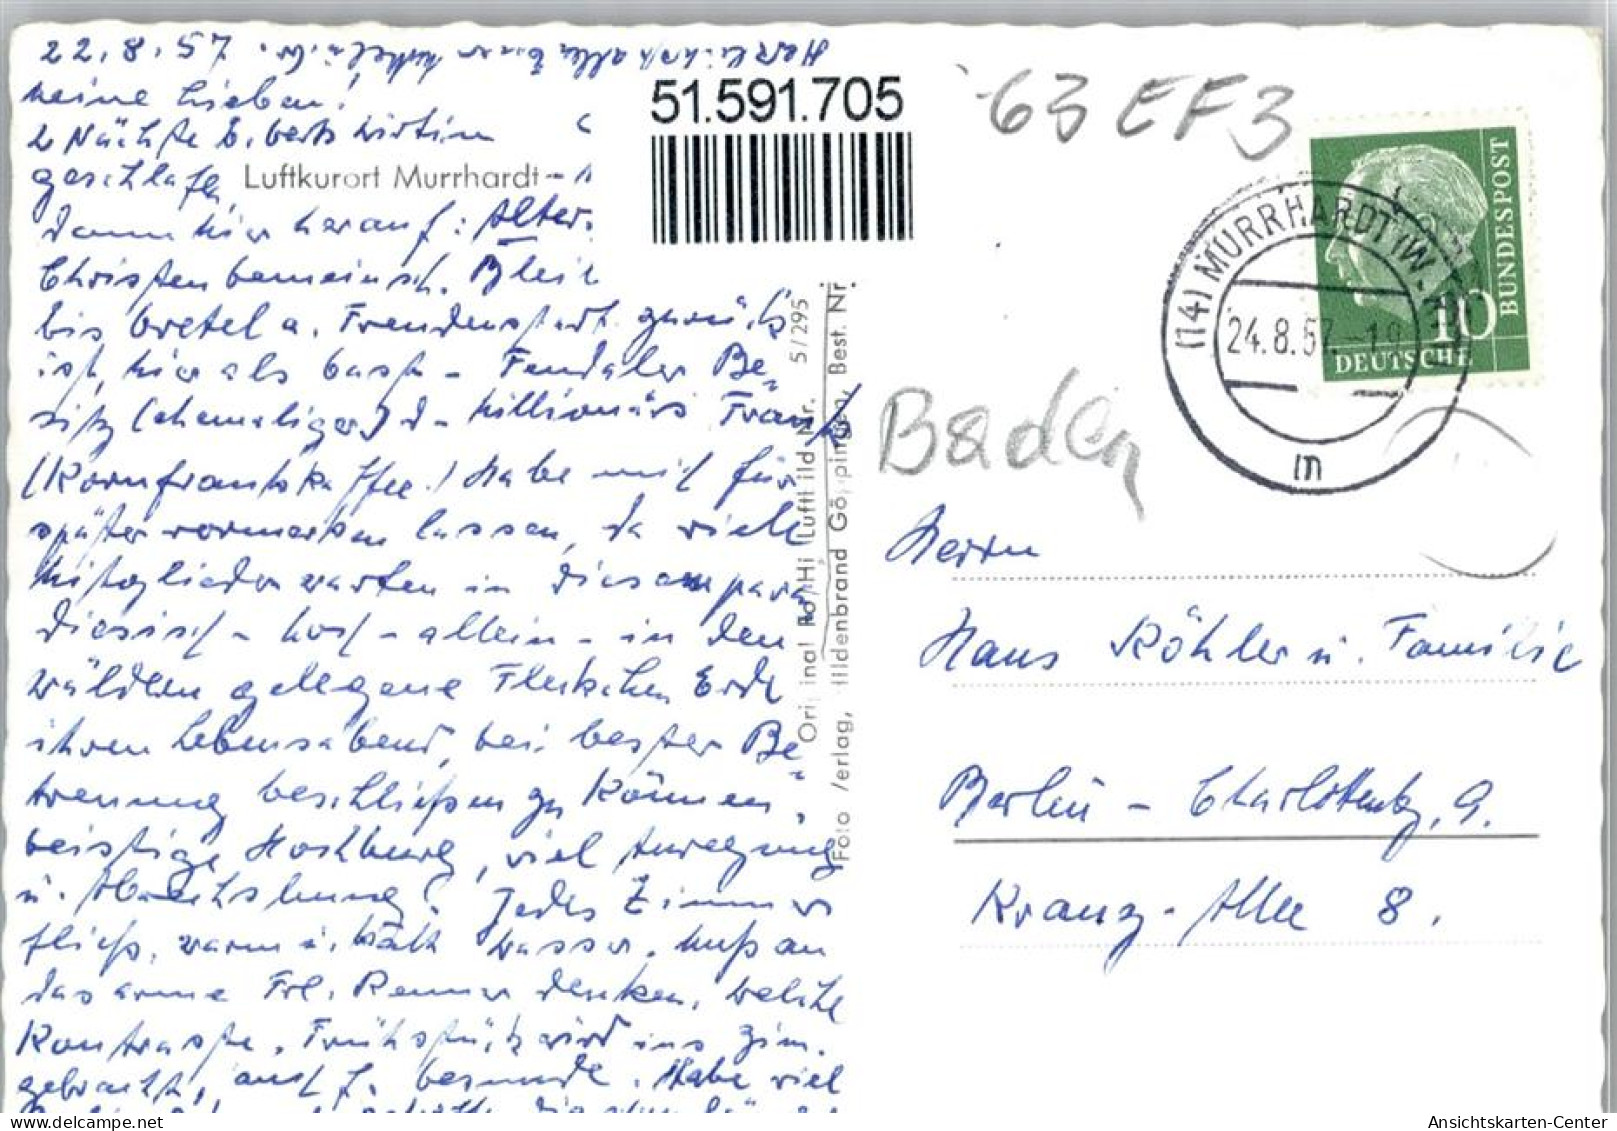 22.8.57. Herzlichst allen Euer
Meine Lieben!
2 Nächte b. Wirtin
geschlafen,
dann hier herauf: Alter
Christengemeinsch. Bleib
bis Gretel a. Freudenstadt zurück
ist, hier als Gast - Feudaler Be-
sitz (ehemaliger) d. Millionärs Frank
(Kornfranckkaffee!) Habe mich für
später vormerken lassen, da viele
Mitglieder warten in diesem para-
diesisch - hoch - allein - in den
Wäldern gelegene Fleckchen Erde
ihren Lebensabend, bei bester Be-
treuung beschließen zu können,
geistige Hochburg, viel Anregung
u. Abwechslung! Jedes Zimmer
fließ. warm u. kalt Wasser. Muß an
das arme Frl. Renner denken, welche
Kontraste. Frühstück wird ins Zim.
gebracht, auch f. Gesunde. Habe viel
Luftkurort Murrhardt
51.591.705
63 EF3
Baden
(14) MURRHARDT (W
24.8.57.-19
m
10
DEUTSCHE
BUNDESPOST
5/295
Original Luftbild Nr.
Foto Verlag, Hildenbrand Göppingen, Best. Nr.
Herrn
Hans Köhler u. Familie
Berlin - Charlottenbg. 9.
Kranz-Allee 8.
Ansichtskarten-Center